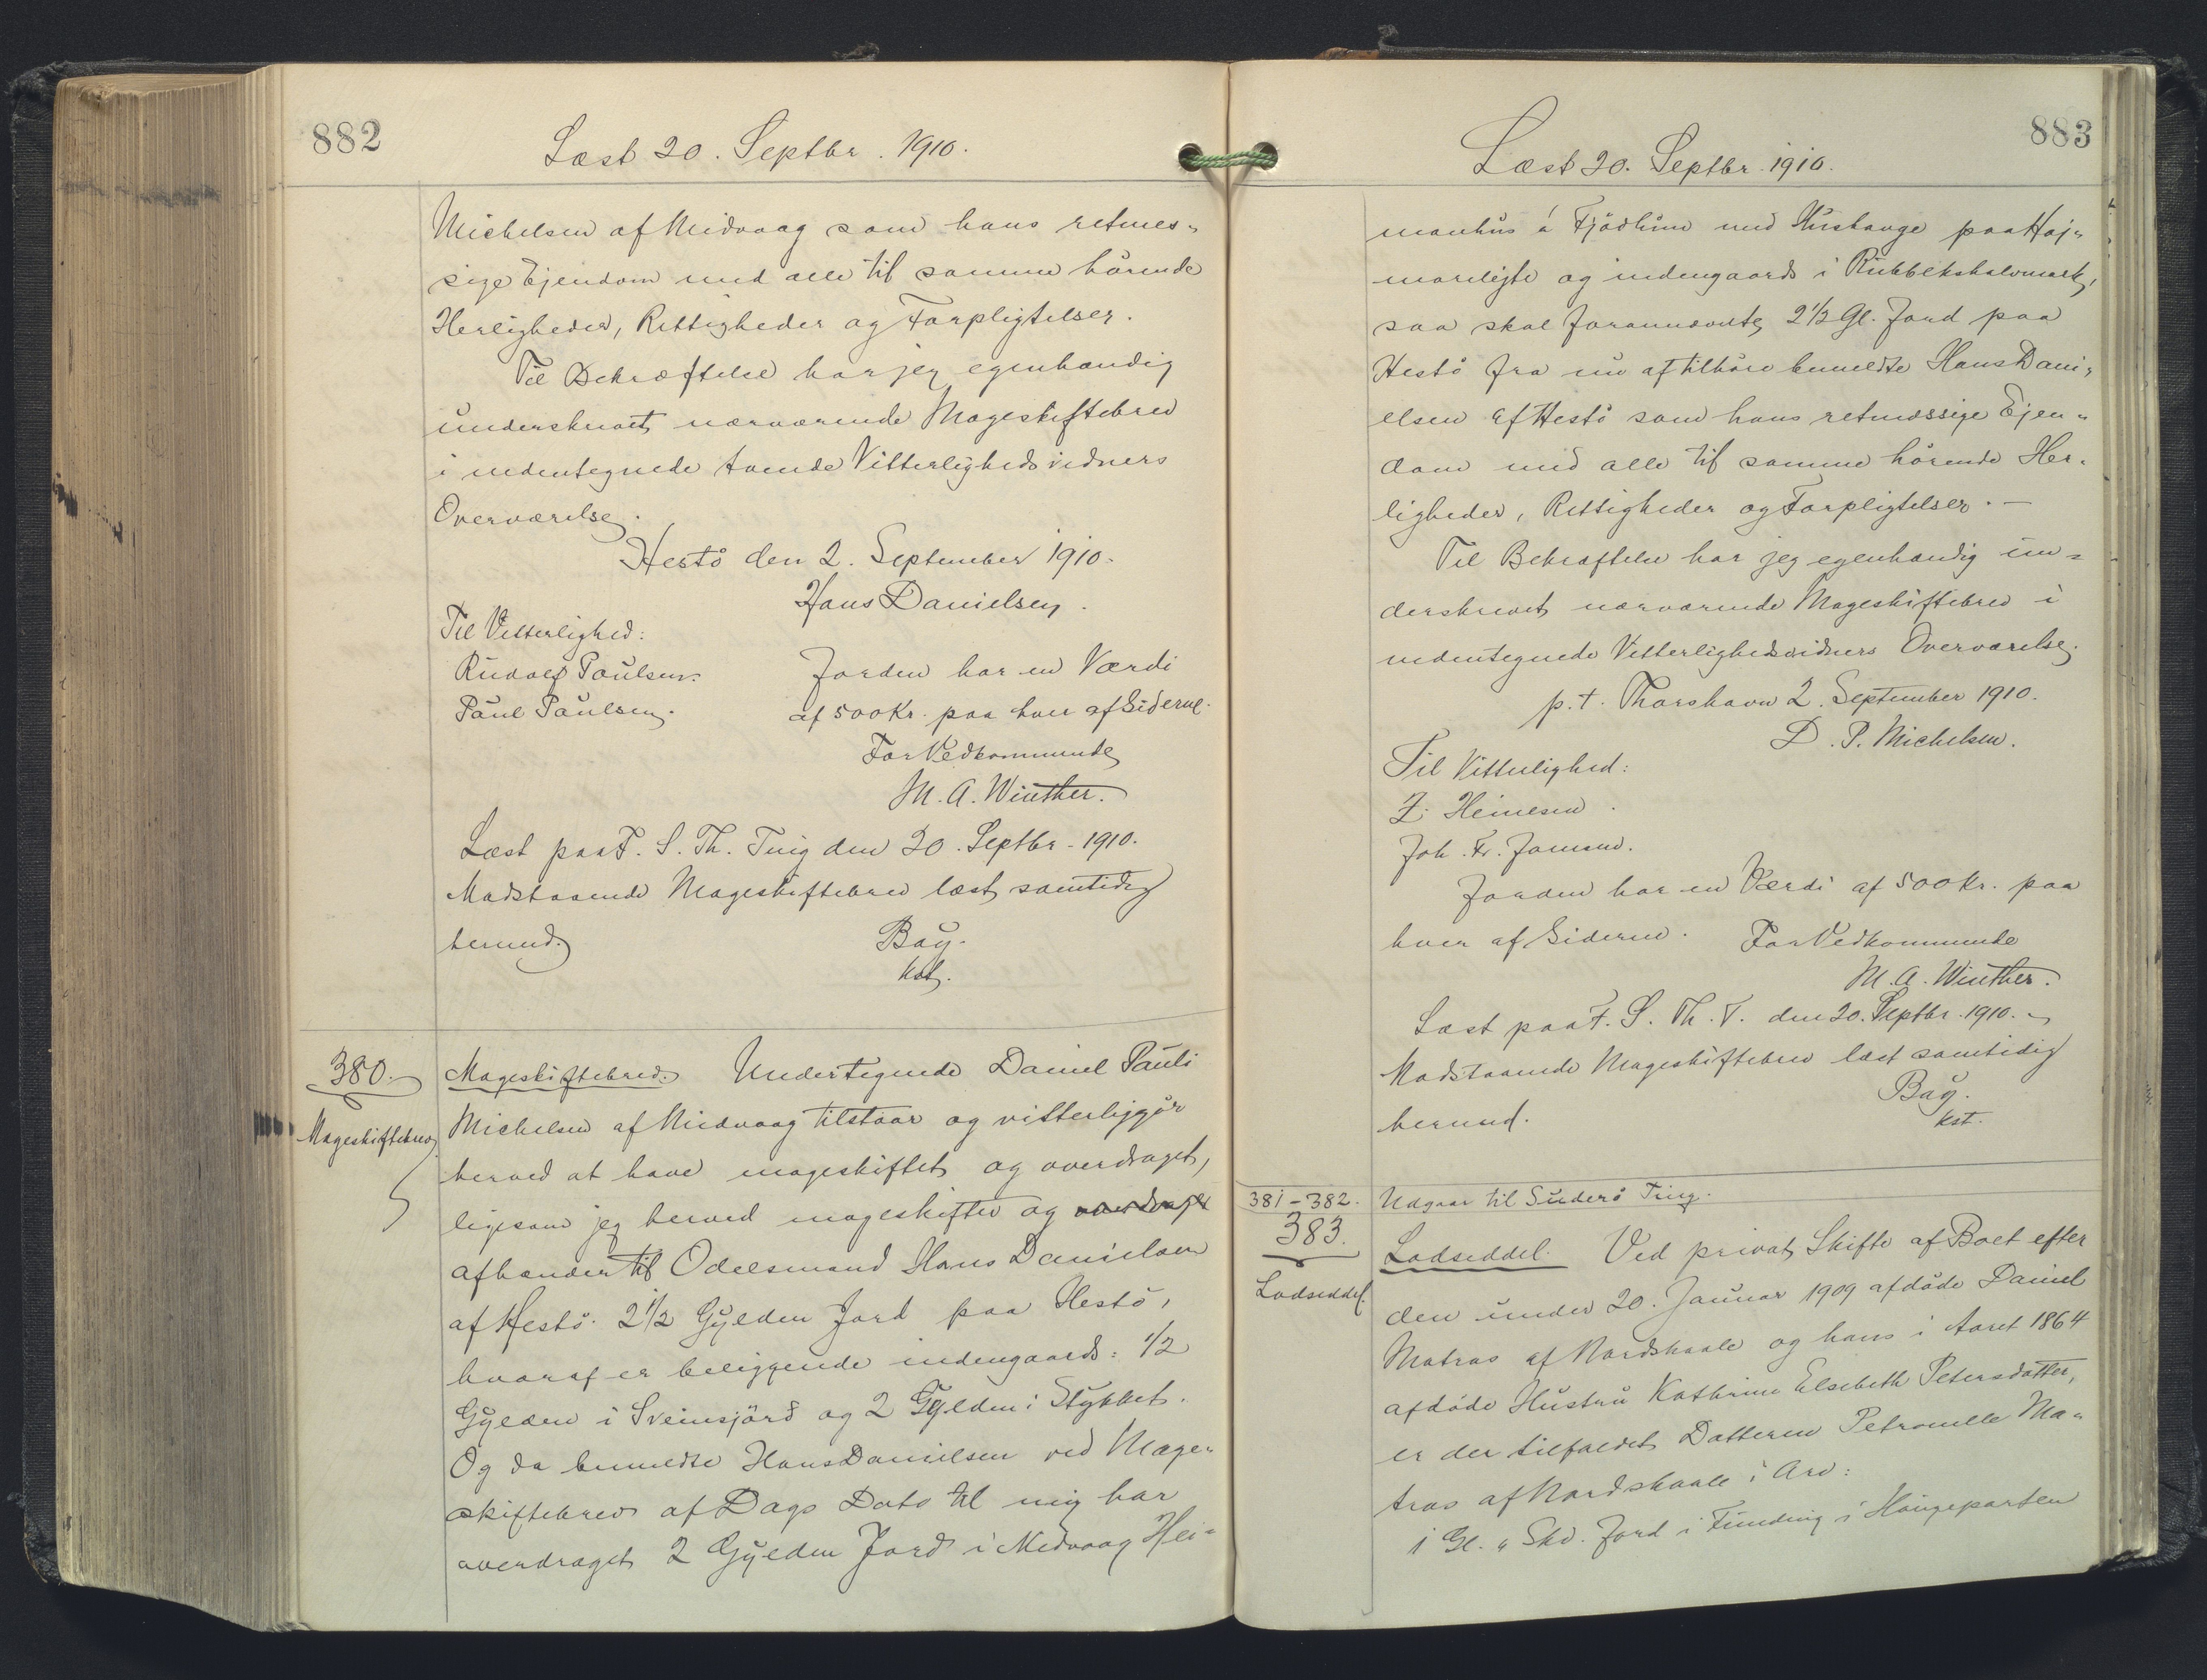 882
Læst 20. Septbr. 1910.
Michelsen af Midvaag som hans retmes-
sige Ejendom med alle til samme hörende
Herligheder, Rettigheder og Forpligtelser.
Til Bekræftelse har jeg egenhændig
underskrevet nærværende Mageskiftebrev
i nedentegnede tvende Vitterlighedsvidners
Overværelse.
Hestö den 2. September 1910.
Hans Danielsen.
Til Vitterlighed:
Rudolf Poulsen.
Jorden har en Værdi
Paul Paulsen.
af 500 Kr. paa hver af Siderne.
For Vedkommende
M. A. Winther.
Læst paa F. S. Th. Ting den 20. Septbr. 1910.
Modstaaende Mageskiftebrev læst samtidig
hermed.
Bay.
kst.
380.
Mageskiftebrev
Mageskiftebrev. Undertegnede Daniel Pauli
Michelsen af Midvaag tilstaar og vitterliggör
herved at have mageskiftet og overdraget,
ligesom jeg herved mageskifter og overdrager
afhænder til Odelsmand Hans Danielsen
af Hestö. 2 1/2 Gylden Jord paa Hestö,
hvoraf er beliggende indengaards: 1/2
Gylden i Sveinsjörd og 2 Gylden i Stykket.
Og da bemeldte Hans Danielsen ved Mage-
skiftebrev af Dags Dato til mig har
overdraget 2 Gylden Jord i Midvaag Hei-
883
Læst 20. Septbr. 1910.
manhus á Fjödhim med Hushauge paa
og indengaards i
saa skal forannævnte 2 1/2 Gl. Jord paa
Hestö fra nu af tilhöre bemeldte Hans Dani-
elsen af Hestö som hans retmæssige Ejen-
dom med alle til samme hörende Her-
ligheder, Rettigheder og Forpligtelser. —
Til Bekræftelse har jeg egenhændig un-
derskrevet nærværende Mageskiftebrev i
nedentegnede Vitterlighedsvidners Overværelse.
p. t. Thorshavn 2. September 1910.
D. P. Michelsen.
Til Vitterlighed:
Z. Heinesen.
Joh. Fr. Joensen.
Jorden har en Værdi af 500 Kr. paa
hver af Siderne. For Vedkommende
M. A. Winther.
Læst paa F. S. Th. T. den 20. Septbr. 1910.
Modstaaende Mageskiftebrev læst samtidig
hermed.
Bay.
kst.
381-382. Udgaar til Suderö Ting.
383.
Lodseddel.
Lodseddel. Ved privat Skifte af Boet efter
den under 20. Januar 1909 afdöde Daniel
Matras af Nordskaale og hans i Aaret 1864
afdöde Hustru Kathrine Elsebeth Petersdatter,
er der tilfaldet Datteren Petronelle Ma-
tras af Nordskaale i Arv:
1 Gl. " Skd. Jord i Funding i Haugeparten